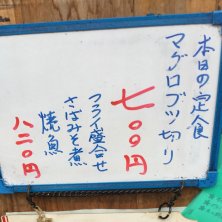 本日の定食
マグロブツ切り
七〇〇円
フライ盛合せ
さばみそ煮
焼魚
八二〇円